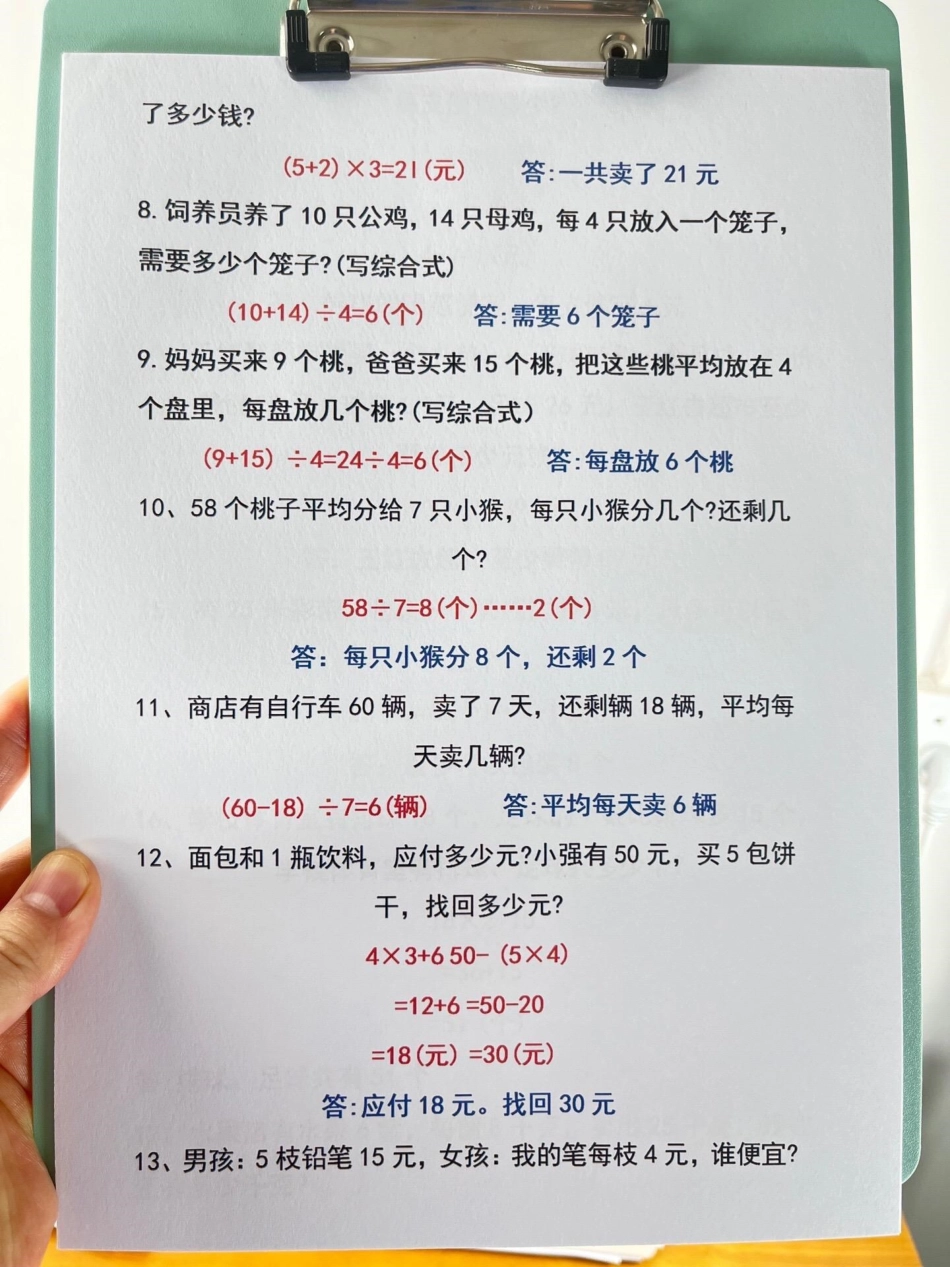 了多少钱?
(5+2)×3=21(元) 答:一共卖了 21 元
8. 饲养员养了 10 只公鸡, 14 只母鸡, 每 4 只放入一个笼子,
需要多少个笼子?(写综合式)
(10+14)÷4=6(个) 答:需要 6 个笼子
9. 妈妈买来 9 个桃, 爸爸买来 15 个桃, 把这些桃平均放在 4
个盘里, 每盘放几个桃?(写综合式)
(9+15) ÷4=24÷4=6(个) 答:每盘放 6 个桃
10、58 个桃子平均分给 7 只小猴, 每只小猴分几个?还剩几
个?
58÷7=8(个)……2(个)
答: 每只小猴分 8 个, 还剩 2 个
11、商店有自行车 60 辆, 卖了 7 天, 还剩辆 18 辆, 平均每
天卖几辆?
(60-18) ÷7=6(辆) 答:平均每天卖 6 辆
12、面包和 1 瓶饮料, 应付多少元?小强有 50 元, 买 5 包饼
干, 找回多少元?
4×3+6 50- (5×4)
=12+6 =50-20
=18(元) =30(元)
答:应付 18 元。找回 30 元
13、男孩: 5 枝铅笔 15 元, 女孩: 我的笔每枝 4 元, 谁便宜?